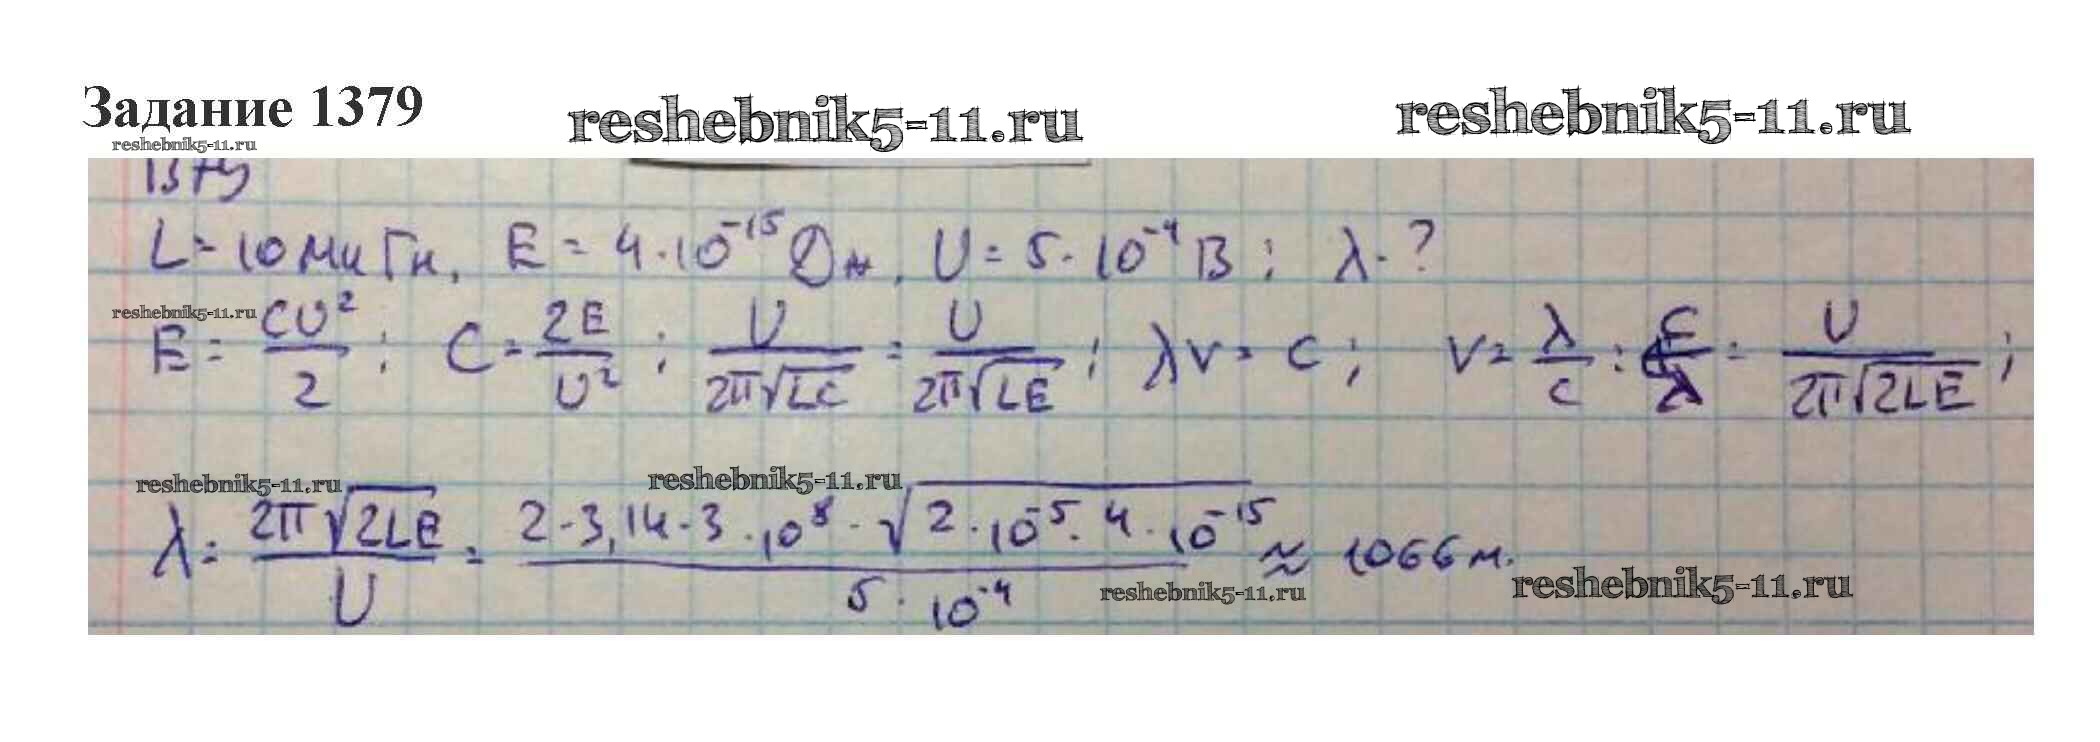 Задание 1379 reshebnik5-11.ru reshebnik5-11.ru
reshebnik5-11.ru
1379
L = 10 мкГн, E = 4·10⁻¹⁵ Дж, U = 5·10⁻⁴ В; λ-?
reshebnik5-11.ru
E = CU²/2; C = 2E/U²; U/2π√LC = U/2π√LE; λν = c; ν = λ/c; c/λ = U/2π√2LE;
reshebnik5-11.ru reshebnik5-11.ru
λ = 2π√2LE/U = 2·3,14·3·10⁸·√2·10⁻⁵·4·10⁻¹⁵/5·10⁻⁴ ≈ 1066 м.
reshebnik5-11.ru reshebnik5-11.ru